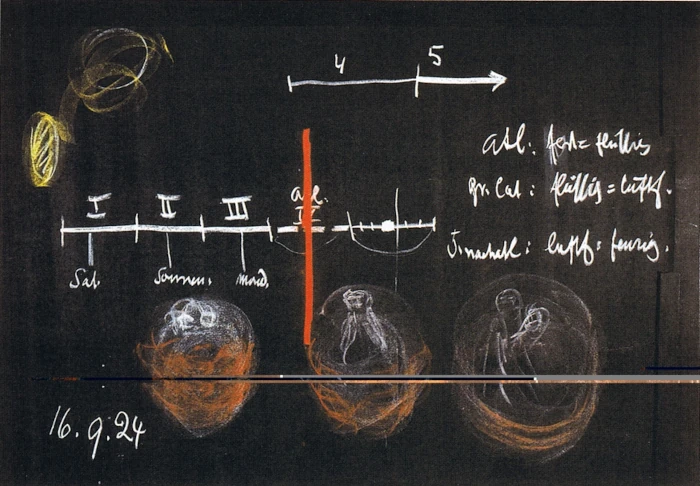 4 5
Atl: fest=flüssig
gr. Cat: flüssig=luftf.
I II III Atl. IV
luftf=feurig.
Sat. Sonnen. Mond.
16.9.24